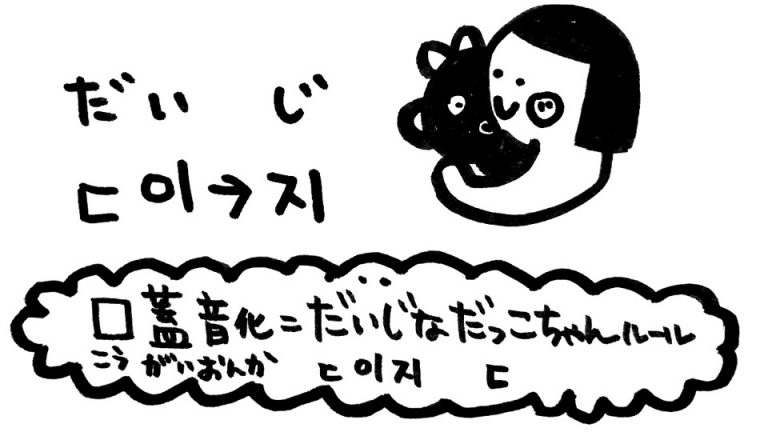 だいじ
ㄷ이→지
口蓋音化=だいじなだっこちゃんルール
こうがいおんか ㄷ이지 ㄷ